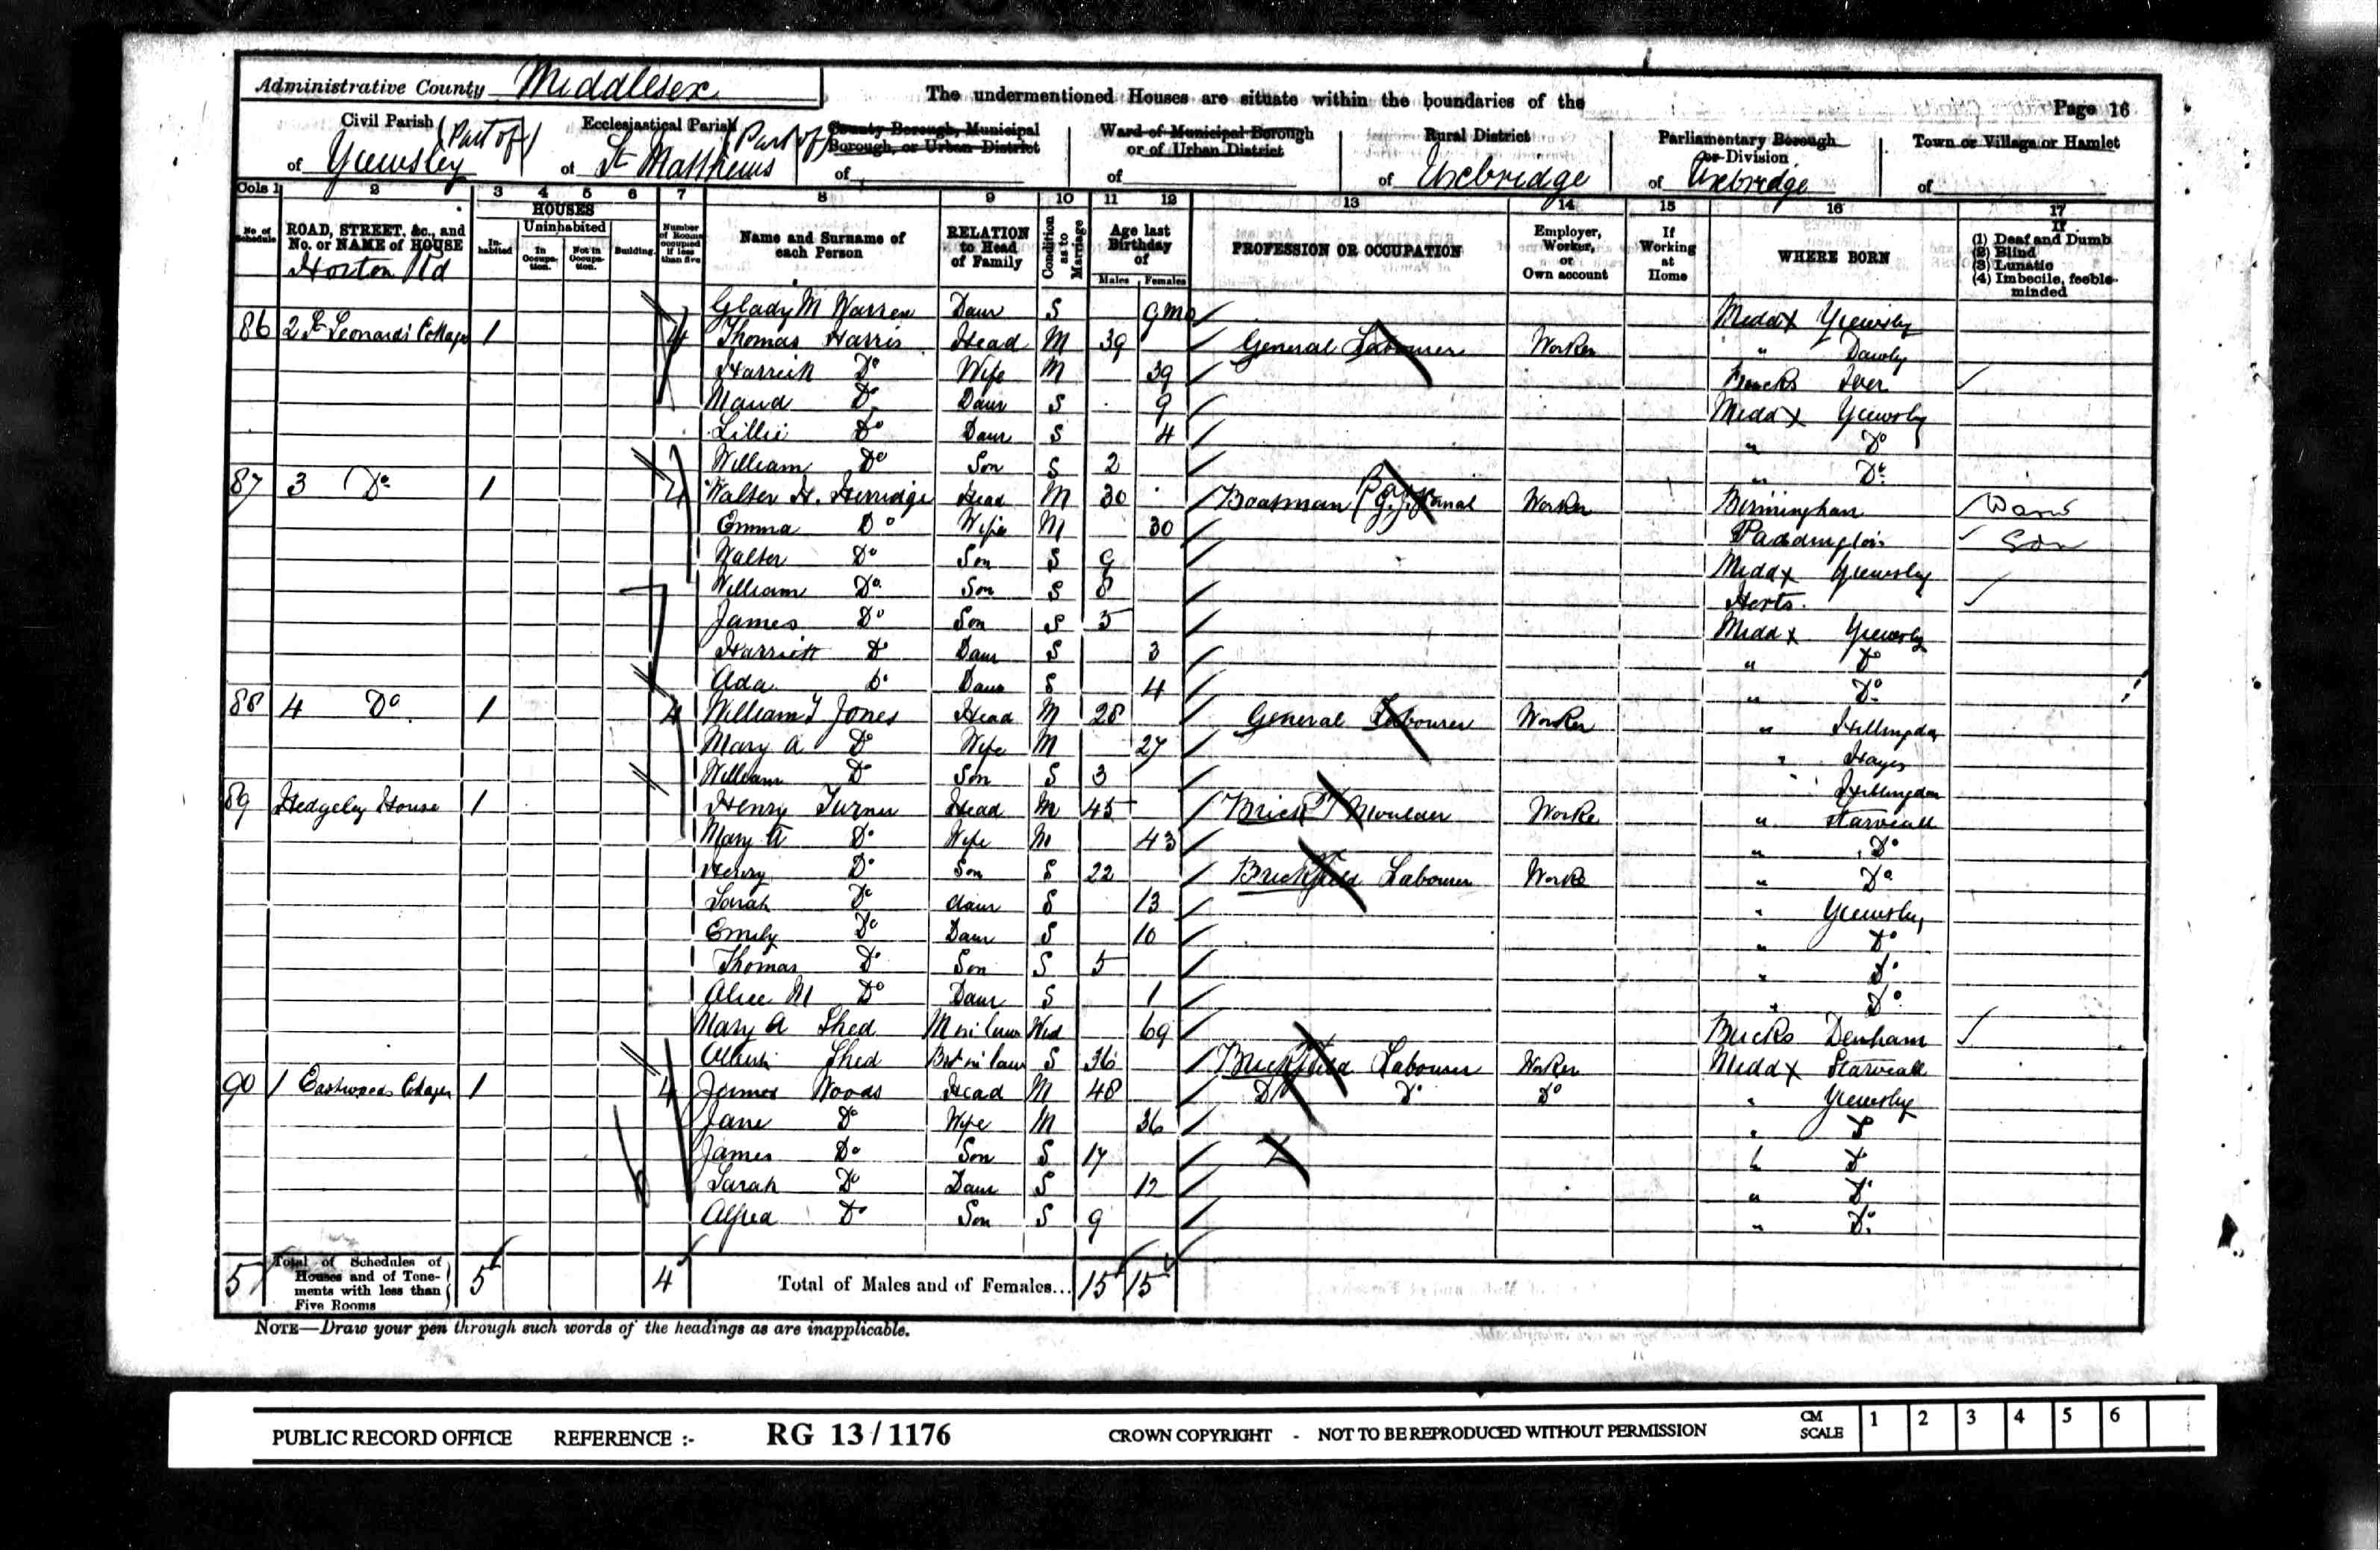 Administrative County Middlesex
The undermentioned Houses are situate within the boundaries of the
Page 16
Civil Parish (Part of) of Yiewsley
Ecclesiastical Parish (Part of) of St Matthews
County Borough, Municipal Borough, or Urban District of
Ward of Municipal Borough or of Urban District of
Rural District of Uxbridge
Parliamentary Borough or Division of Uxbridge
Town or Village or Hamlet of
Cols 1 2 3 4 5 6 7 8 9 10 11 12 13 14 15 16 17
No. of Schedule
ROAD, STREET, &c., and No. or NAME of HOUSE
HOUSES
Inhabited
Uninhabited
In Occupation.
Not in Occupation.
Building.
Number of Rooms occupied if less than five
Name and Surname of each Person
RELATION to Head of Family
Condition as to Marriage
Age last Birthday of
Males Females
PROFESSION OR OCCUPATION
Employer, Worker, or Own account
If Working at Home
WHERE BORN
If (1) Deaf and Dumb (2) Blind (3) Lunatic (4) Imbecile, feeble-minded
Horton Rd
Glady M Warren Daur S 9 mo Middx Yiewsly
86 2 St Leonards Cottage 1 4 Thomas Harris Head M 39 General Labourer Worker " Dawly
Harriett Do Wife M 39 Bucks Iver
Maud Do Daur S 9 Middx Yiewsly
Lillie Do Daur S 4 " Do
William Do Son S 2 " Do
87 3 Do 1 4 Walter H. Herridge Head M 30 Boatman (G.J. Canal Worker Birmingham
Emma Do Wife M 30 Paddington
Walter Do Son S 9 Middx Yiewsly
William Do Son S 8 Herts.
James Do Son S 5 Middx Yiewsly
Harriett Do Daur S 3 " Do
Ada Do Daur S 4 " Do
88 4 Do 1 4 William J Jones Head M 28 General Labourer Worker " Hillingdon
Mary A Do Wife M 27 " Hayes
William Do Son S 3 " Hillingdon
89 Hedgeley House 1 Henry Turner Head M 45 Brick Moulder Worker " Starveall
Mary A Do Wife M 43 " Do
Henry Do Son S 22 Brickfield Labourer Worker " Do
Sarah Do daur S 13 " Yiewsly
Emily Do Daur S 10 " Do
Thomas Do Son S 5 " Do
Alice M Do Daur S 1 " Do
Mary A Shed M in law Wid 69 Bucks Denham
Albert Shed Bro in law S 36 Brickfield Labourer Worker Middx Starveall
90 1 Eastwoods Cottages 1 4 James Woods Head M 48 Do Do Do " Yiewsly
Jane Do Wife M 36 " Do
James Do Son S 17 " Do
Sarah Do Daur S 12 " Do
Alfred Do Son S 9 " Do
5 Total of Schedules of Houses and of Tenements with less than Five Rooms 5 4 Total of Males and of Females... 15 15
NOTE—Draw your pen through such words of the headings as are inapplicable.
PUBLIC RECORD OFFICE REFERENCE :- RG 13 / 1176 CROWN COPYRIGHT - NOT TO BE REPRODUCED WITHOUT PERMISSION CM SCALE 1 2 3 4 5 6